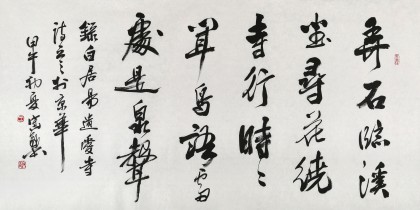 弄石臨溪
坐尋花繞
寺行時〻
聞鳥語處
處是泉聲
錄白居易遺愛寺
詩於京華
甲午初夏